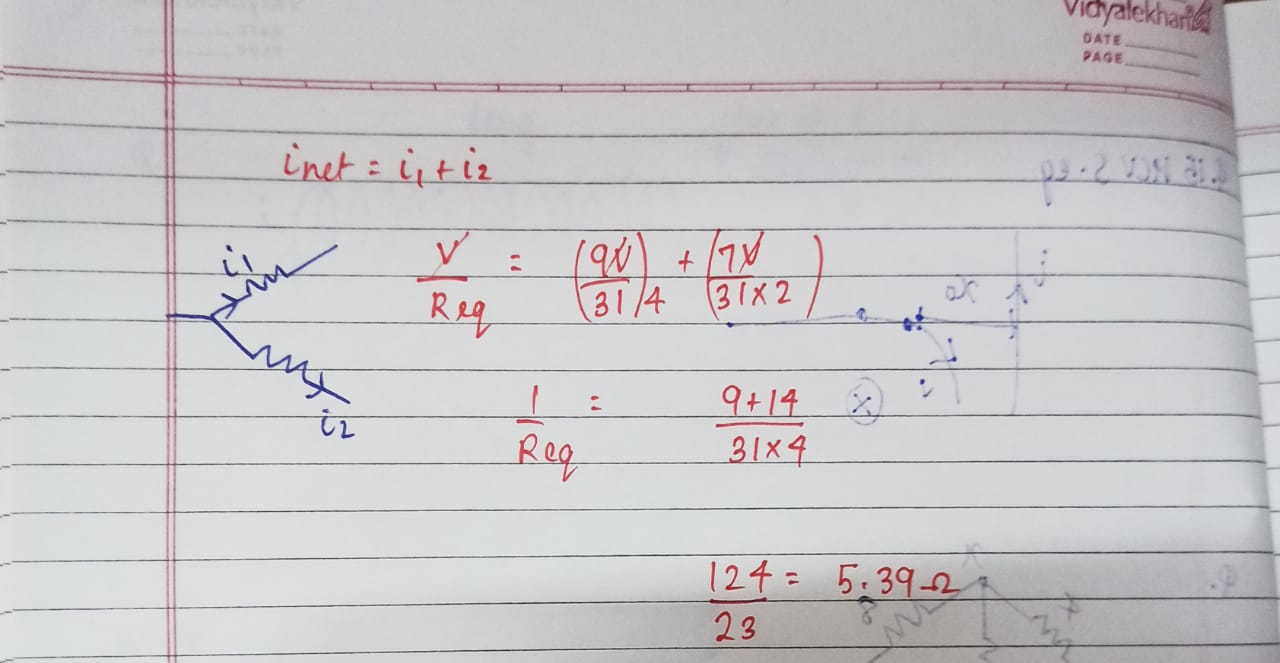 Vidyalekhan
DATE
PAGE
inet = i1 + i2
i1
V/Req = (9V/31)4 + (7V/31×2)
i2
1/Req = 9+14/31×4
124/23 = 5.39Ω